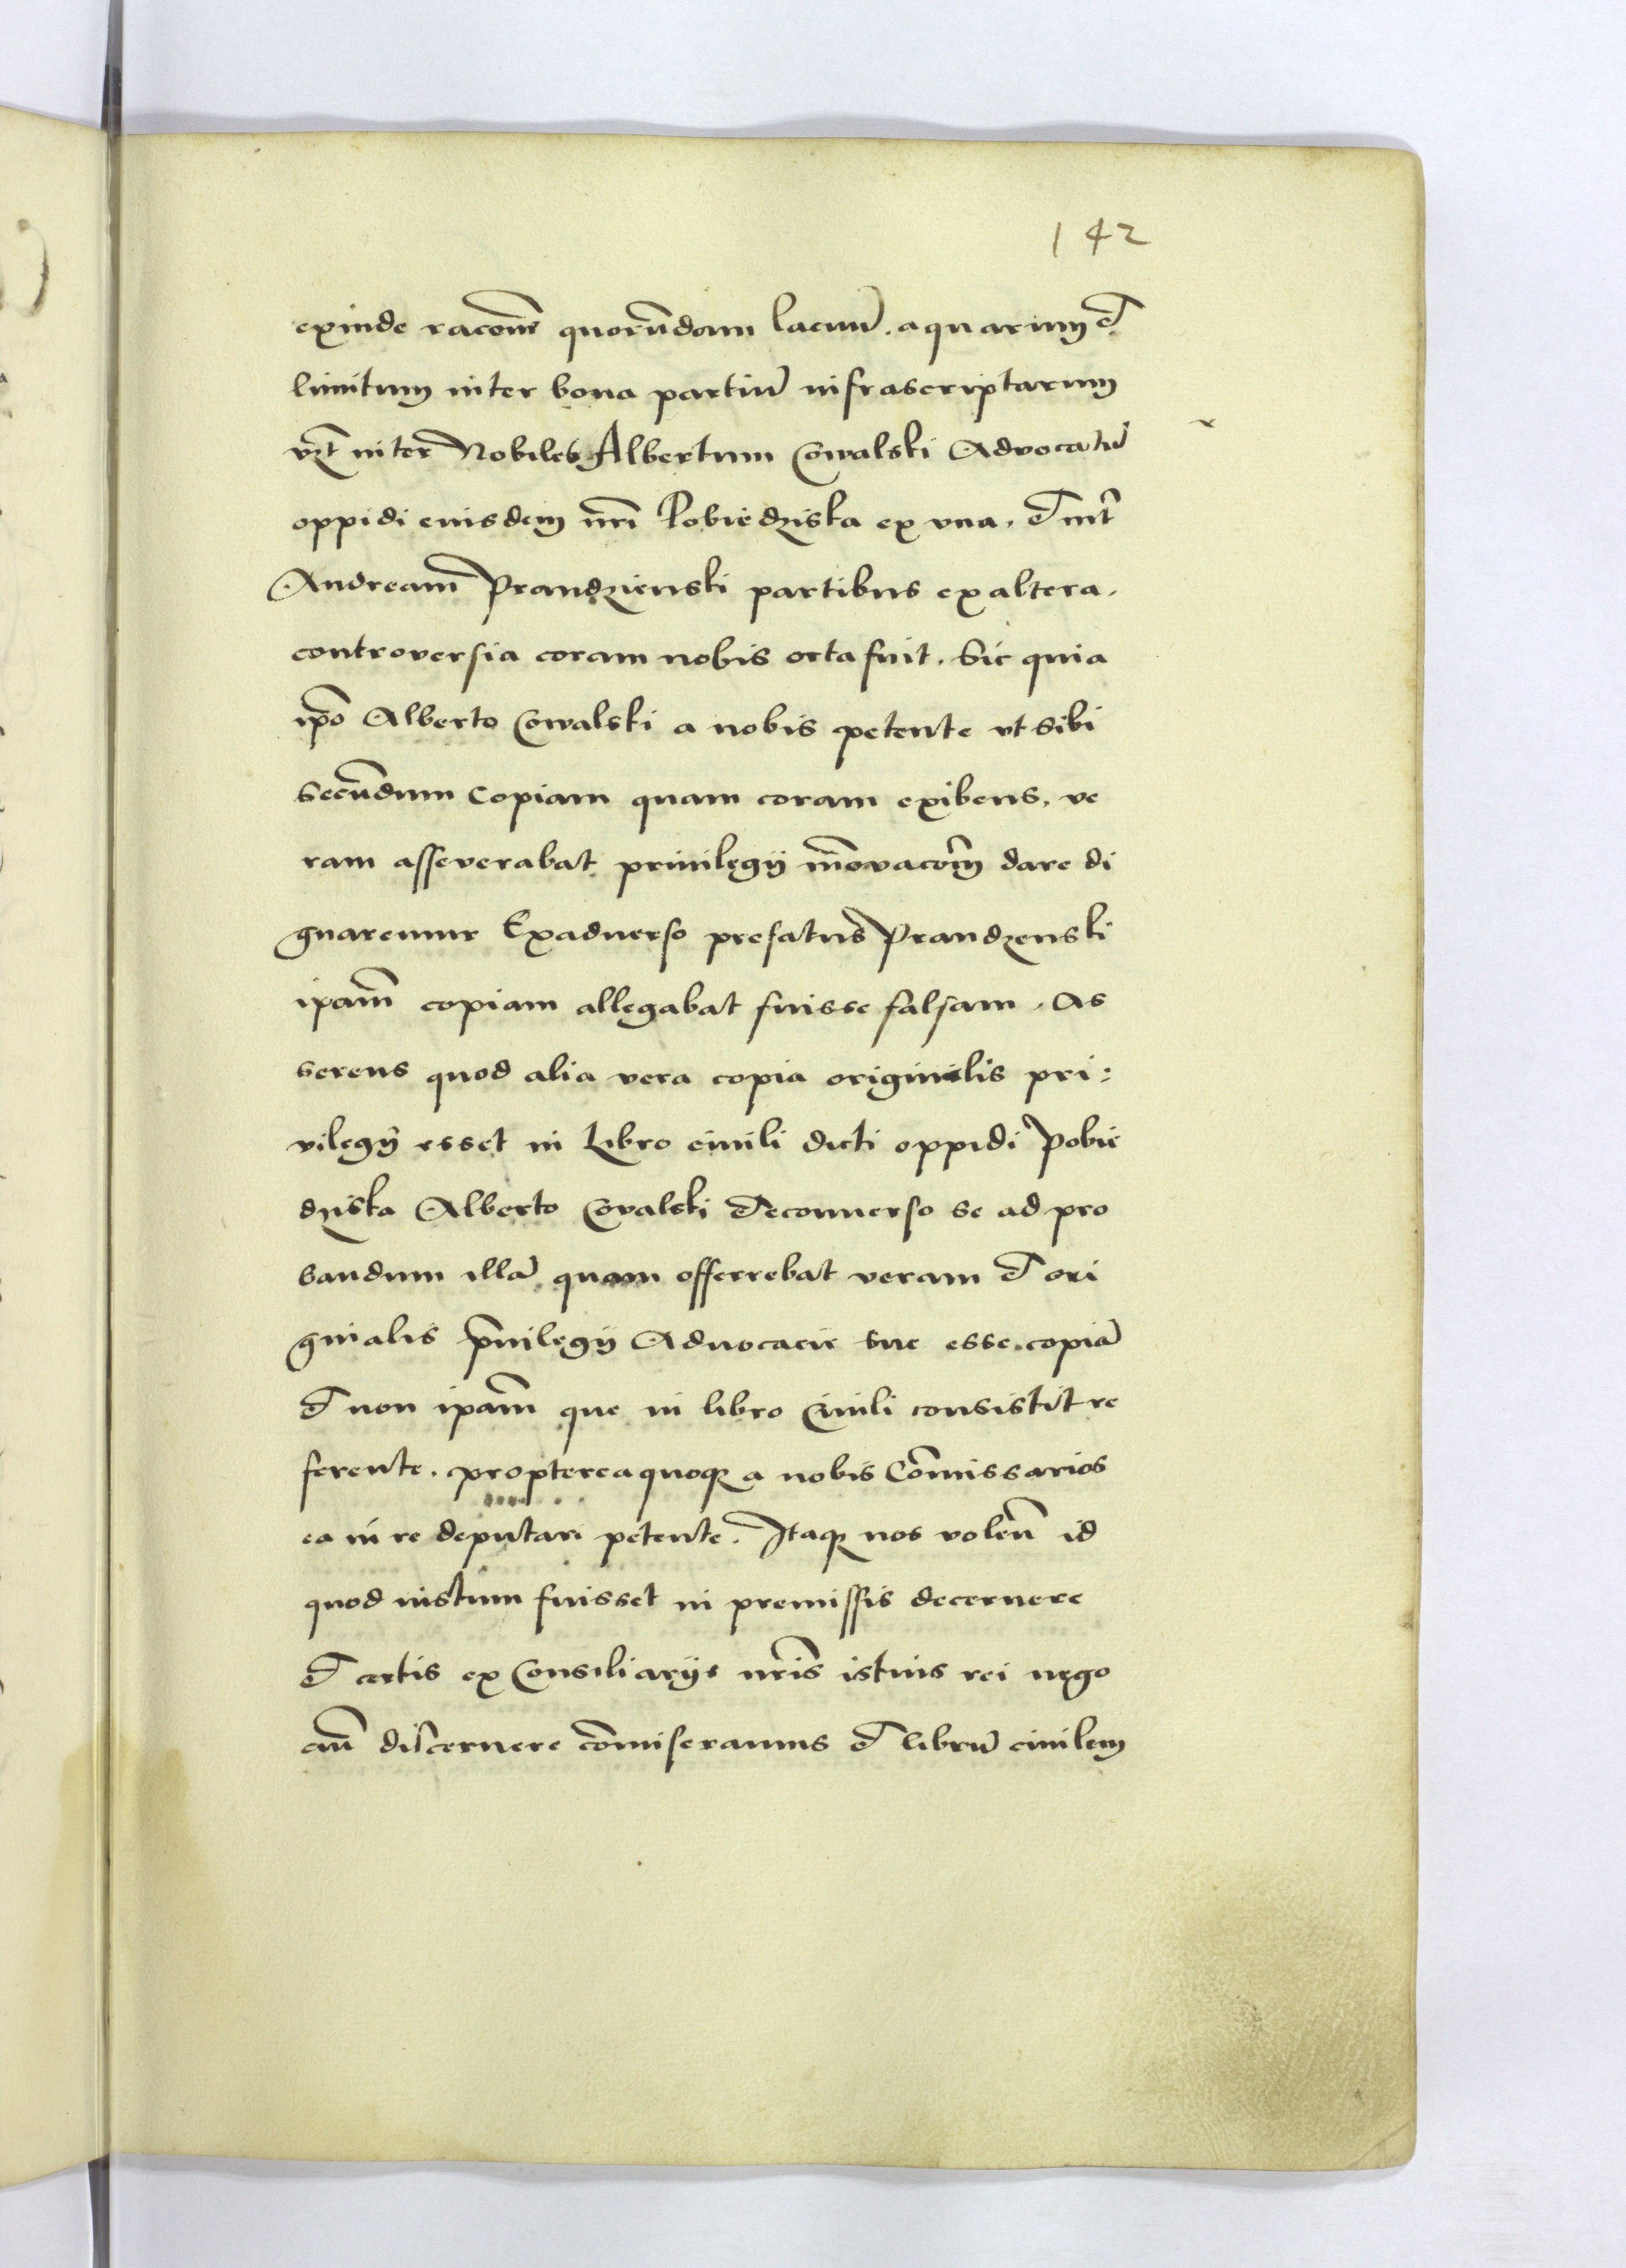 142
exinde racōne quorūdam lacuū. aquarum et
limitum inter bona partiū infrascriptarum
vzt inter Nobiles Albertum Cowalski Advocatū
oppidi eiusdem nrī Pobiedziska ex vna. et int̄
Andream Prandzienski partibus ex altera.
controversia coram nobis orta fuit. Sic quia
ip̄o Alberto Cowalski a nobis petente vt sibi
secūdum copiam quam coram exibens, ve
ram asseverabat privilegii īnovacōm dare di
gnaremur Exadverso prefatus Prandzenski
ipam̄ copiam allegabat fuisse falsam. As
serens quod alia vera copia originalis pri:
vilegij esset in Libro civili dicti oppidi Pobie
dziska Alberto Covalski Econuerso se ad pro
bandum illā quam offerrebat veram et ori
ginalis p̄uilegii Aduocacie sue esse copiā
et non ipam̄ que in libro Ciuili consistit re
ferente. proptereaquoq̨ a nobis Com̄issarios
ea in re deputari petente. Itaq̨ nos volen̄ id
quod iustum fuisset in premissis decernere
et certis ex Consiliariis nrīs istius rei nego
ciū discernere com̄iseramus et librū ciuilem